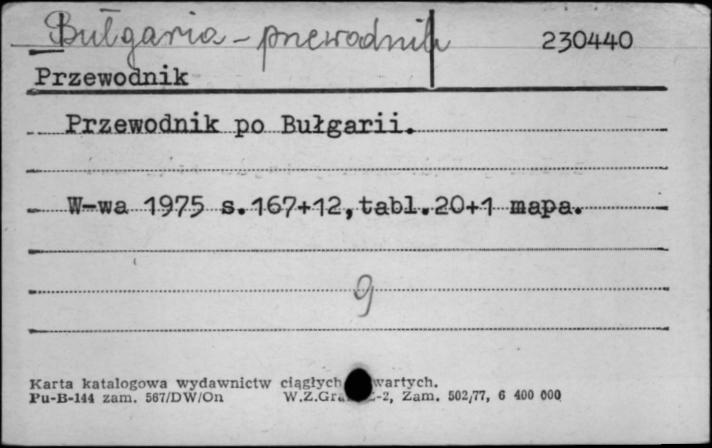 Bułgaria - przewodnik 230440
Przewodnik
Przewodnik po Bułgarii.
W-wa 1975 s.167+12,tabl.20+1 mapa.
9
Karta katalogowa wydawnictw ciągłych wartych.
Pu-B-144 zam. 567/DW/On W.Z.Gra -2, Zam. 502/77, 6 400 000